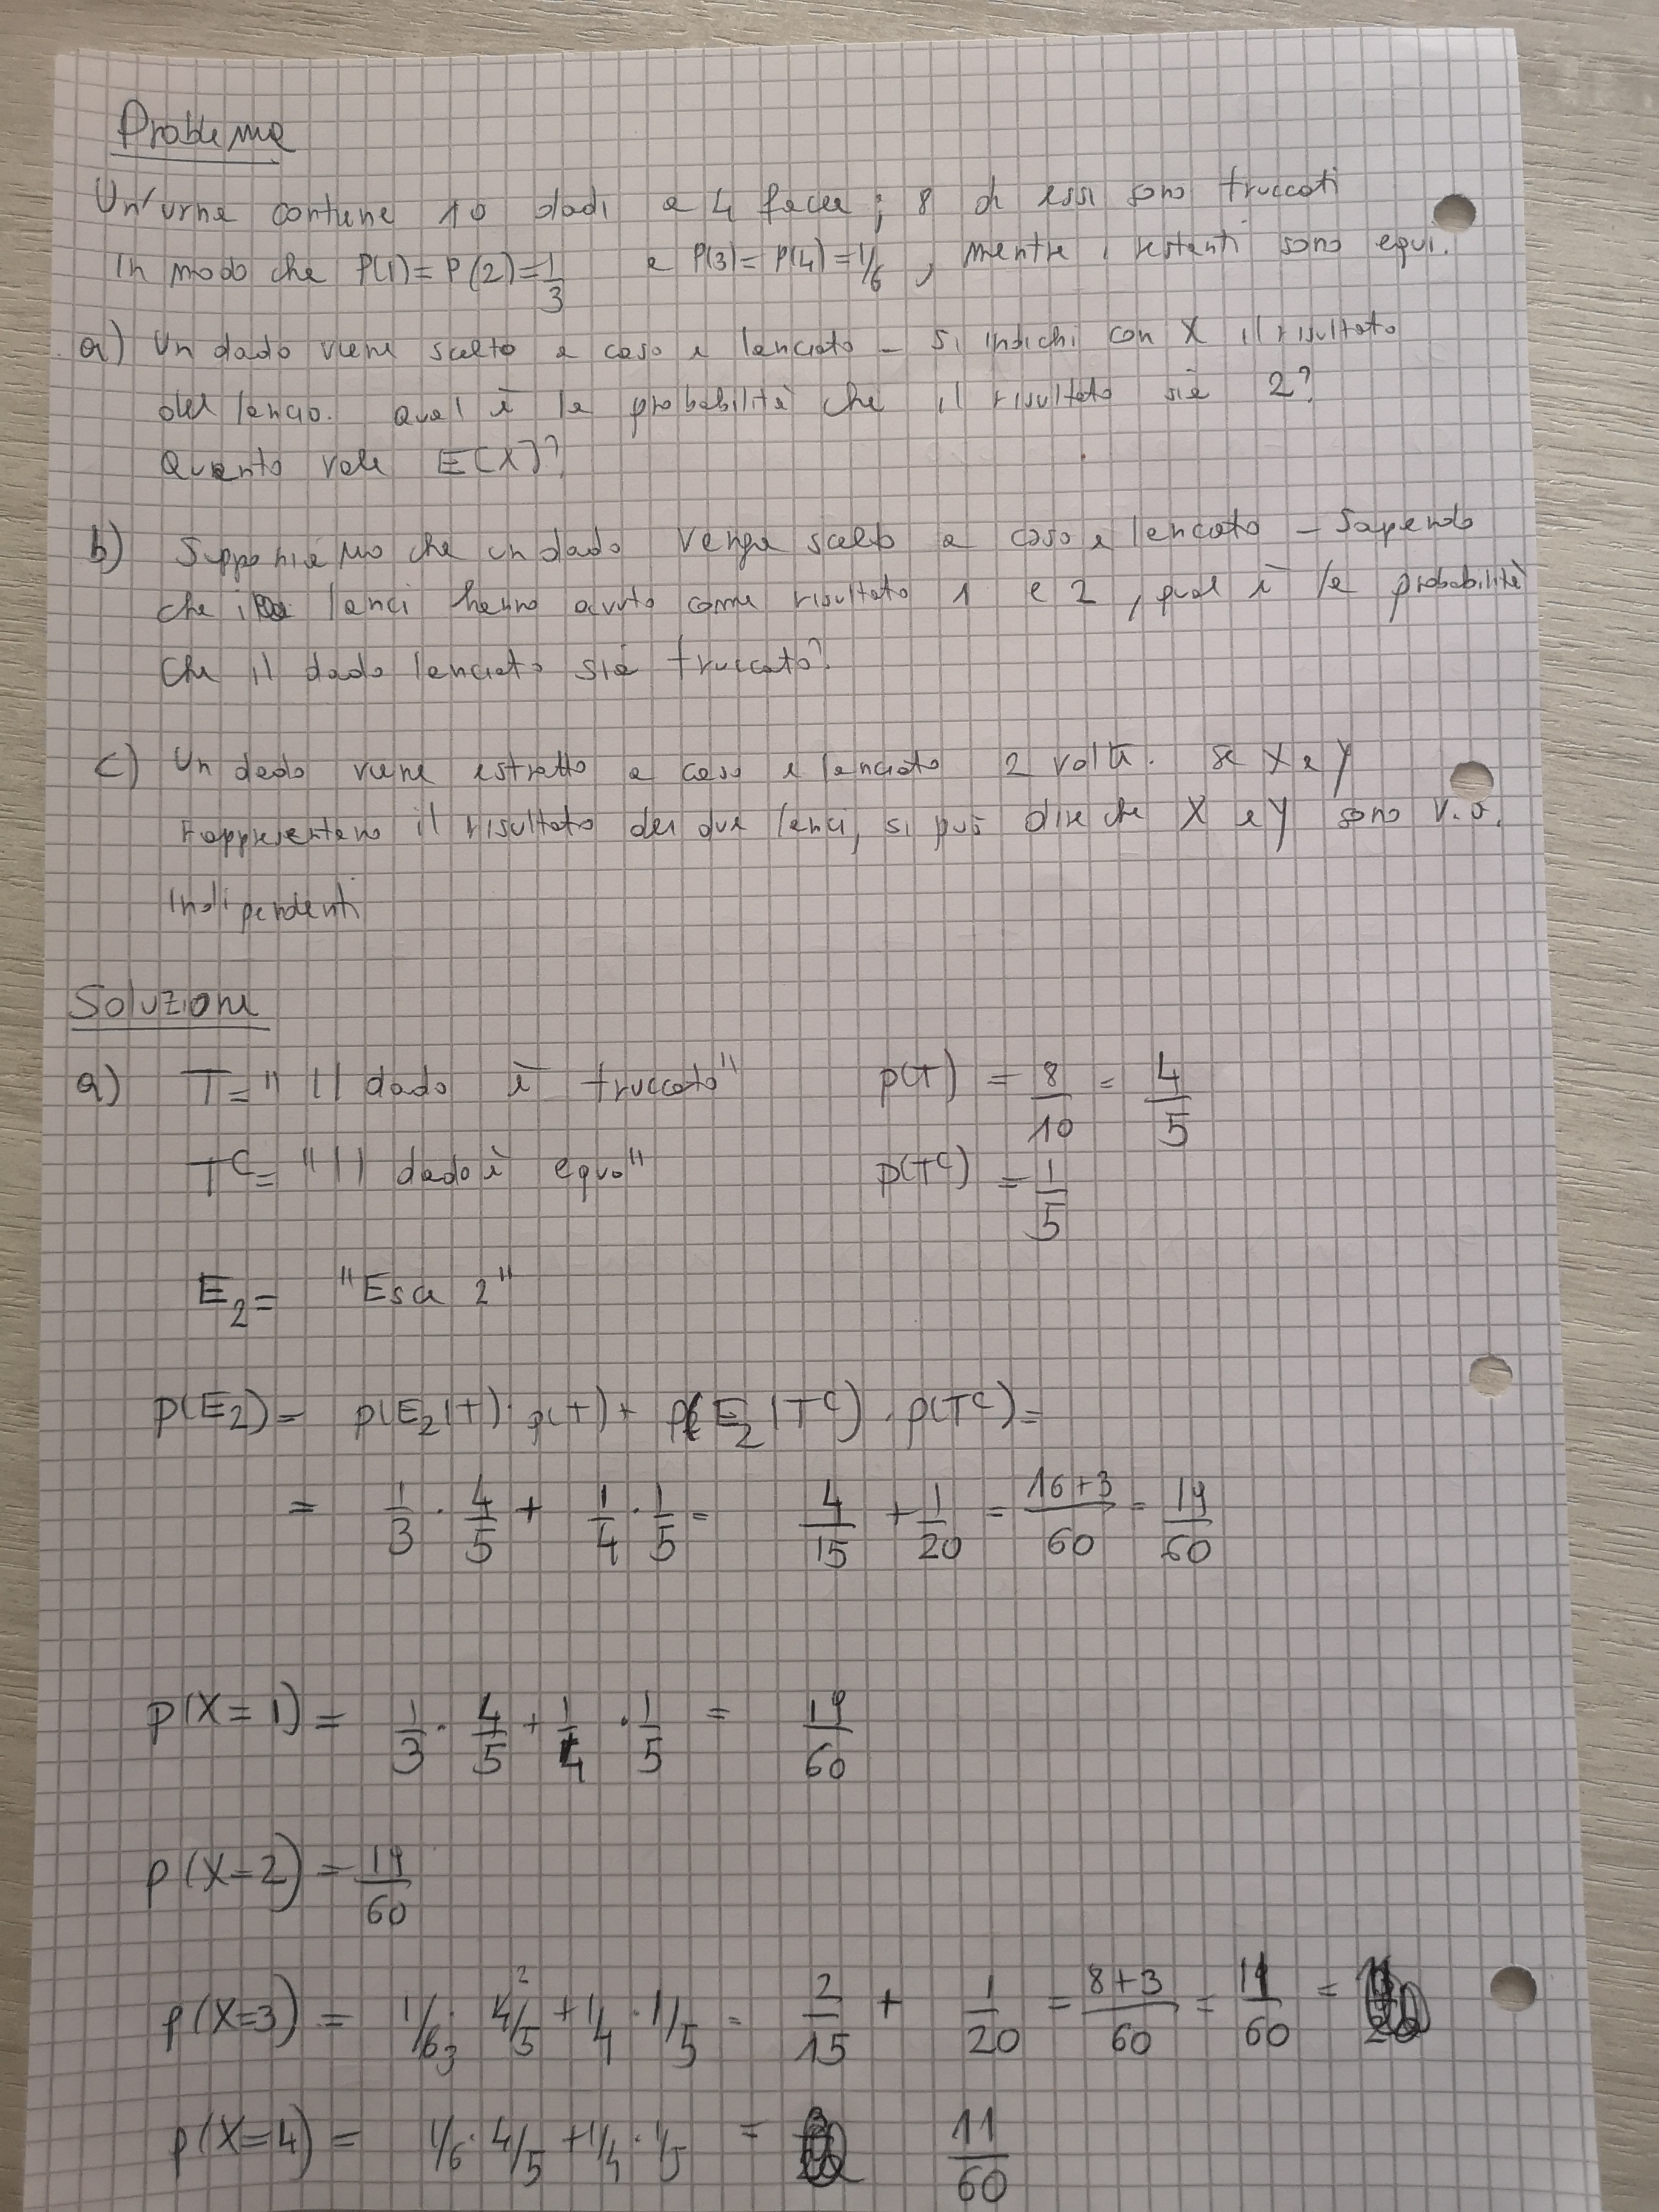 Problema
Un'urna contiene 10 dadi a 4 facce; 8 di essi sono truccati
in modo che P(1)=P(2)=1/3 e P(3)=P(4)=1/6, mentre i restanti sono equi.
a) Un dado viene scelto a caso e lanciato - Si indichi con X il risultato
del lancio. Qual è la probabilità che il risultato sia 2?
Quanto vale E(X)?
b) Supponiamo che un dado venga scelto a caso e lanciato - Sapendo
che i lanci hanno avuto come risultato 1 e 2, qual è la probabilità
che il dado lanciato sia truccato?
c) Un dado viene estratto a caso e lanciato 2 volte. Se X e Y
rappresentano il risultato dei due lanci, si può dire che X e Y sono v.a.
indipendenti
Soluzione
a) T="Il dado è truccato" p(T) = 8/10 = 4/5
T^c= "Il dado è equo" p(T^c) = 1/5
E_2= "Esce 2"
p(E_2)= p(E_2|T)·p(T)+ p(E_2|T^c)·p(T^c)=
= 1/3 · 4/5 + 1/4 · 1/5 = 4/15 + 1/20 = 16+3/60 = 19/60
p(X=1)= 1/3 · 4/5 + 1/4 · 1/5 = 19/60
p(X=2)= 19/60
p(X=3) = 1/6 3 · 4/5 2 + 1/4 · 1/5 = 2/15 + 1/20 = 8+3/60 = 11/60 =
p(X=4) = 1/6 · 4/5 + 1/4 · 1/5 = 11/60